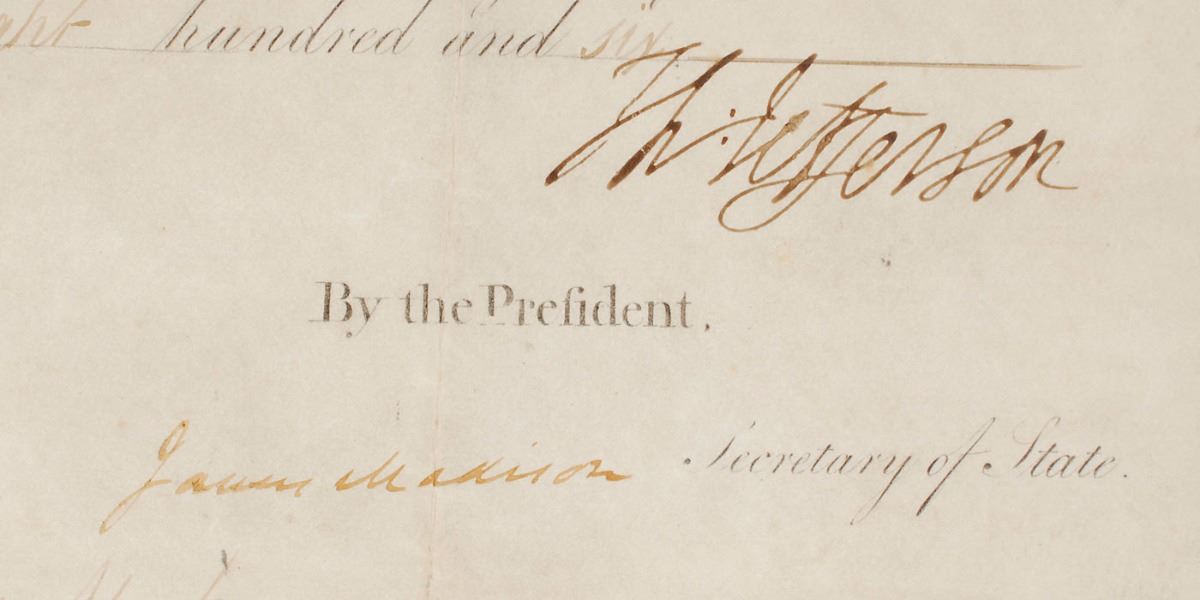 ght hundred and six
Th: Jefferson
By the Preſident.
James Madison Secretary of State.